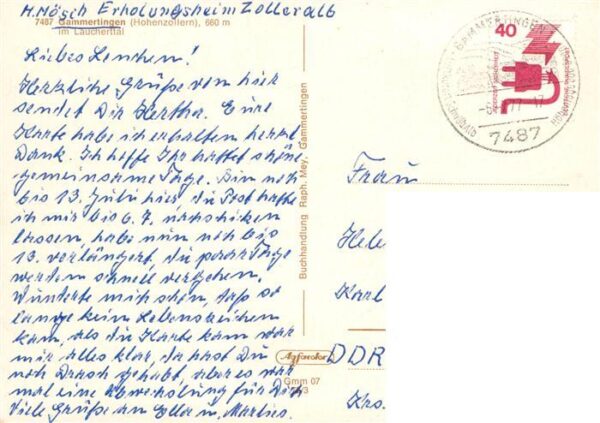 H. Mösch Erholungsheim Zolleralb
7487 Gammertingen (Hohenzollern), 660 m
im Lauchertal
Liebes Lenchen!
Herzliche Grüße von hier
sendet Dir Hertha. Eure
Karte habe ich erhalten herzl.
Dank. Ich hoffe Ihr hattet schöne
gemeinsame Tage. Bin noch
bis 13. Juli hier, die Post hatte
ich mir bis 6. 7. nachschicken
lassen, habe nun noch bis
13. verlängert, die paar Tage
werden schnell vergehen.
Wunderte mich schon, daß so
lange kein Lebenszeichen
kam, als die Karte kam war
mir alles klar, da hast Du
noch Besuch gehabt, aber es war
mal eine Abwechslung für Dich
Viele Grüße an Ella u. Marlies.
Buchhandlung Raph. Mey, Gammertingen
Agfacolor
Gmm 07
40
DEUTSCHE BUNDESPOST
GAMMERTINGEN
7487
Frau
Hele
Karl
DDR
Krs.